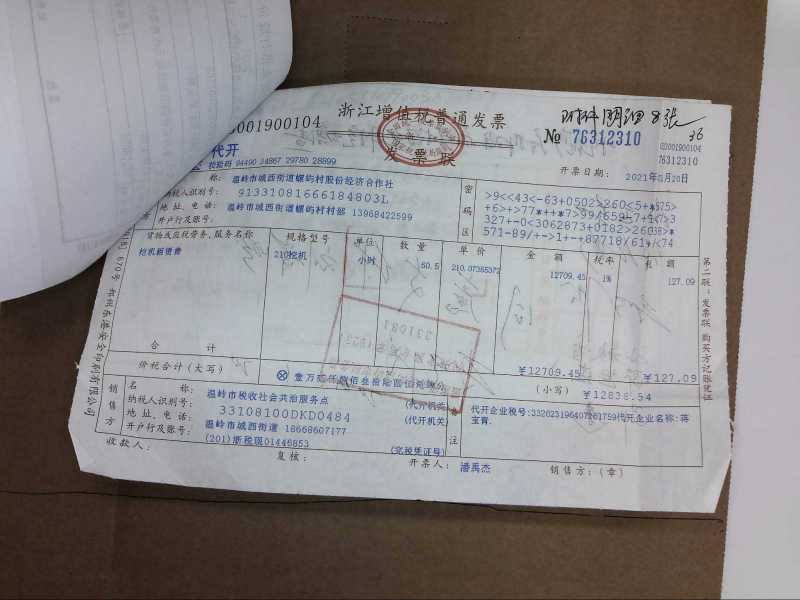 浙江增值税普通发票
附件明细8张
36
3001900104
№ 76312310
03001900104
76312310
代开
发票联
开票日期：
校验码 94490 34867 29780 28899
名　称： 温岭市城西街道螺屿村股份经济合作社
纳税人识别号： 91331081666184803L
地址、电话： 温岭市城西街道螺屿村村部 13968422599
开户行及账号：
密码区
货物或应税劳务、服务名称 规格型号 单位 数量 单价 金额 税率 税额
挖机租赁费 210挖机 小时 60.5 12709.45 1% 127.09
合　计 ￥12709.45 ￥127.09
价税合计（大写） （小写） ￥12836.54
销售方
名　称： 温岭市税收社会共治服务点 （代开机关）
纳税人识别号： 33108100DKD0484 （代开机关）
地址、电话： 温岭市城西街道 18668607177
开户行及账号： (201)浙税现01446853 （完税凭证号）
备注
代开企业税号:332623196407261759代开企业名称:蒋
宝青.
收款人：
复核：
开票人： 潘禹杰
销售方：（章）
第二联：发票联 购买方记账凭证